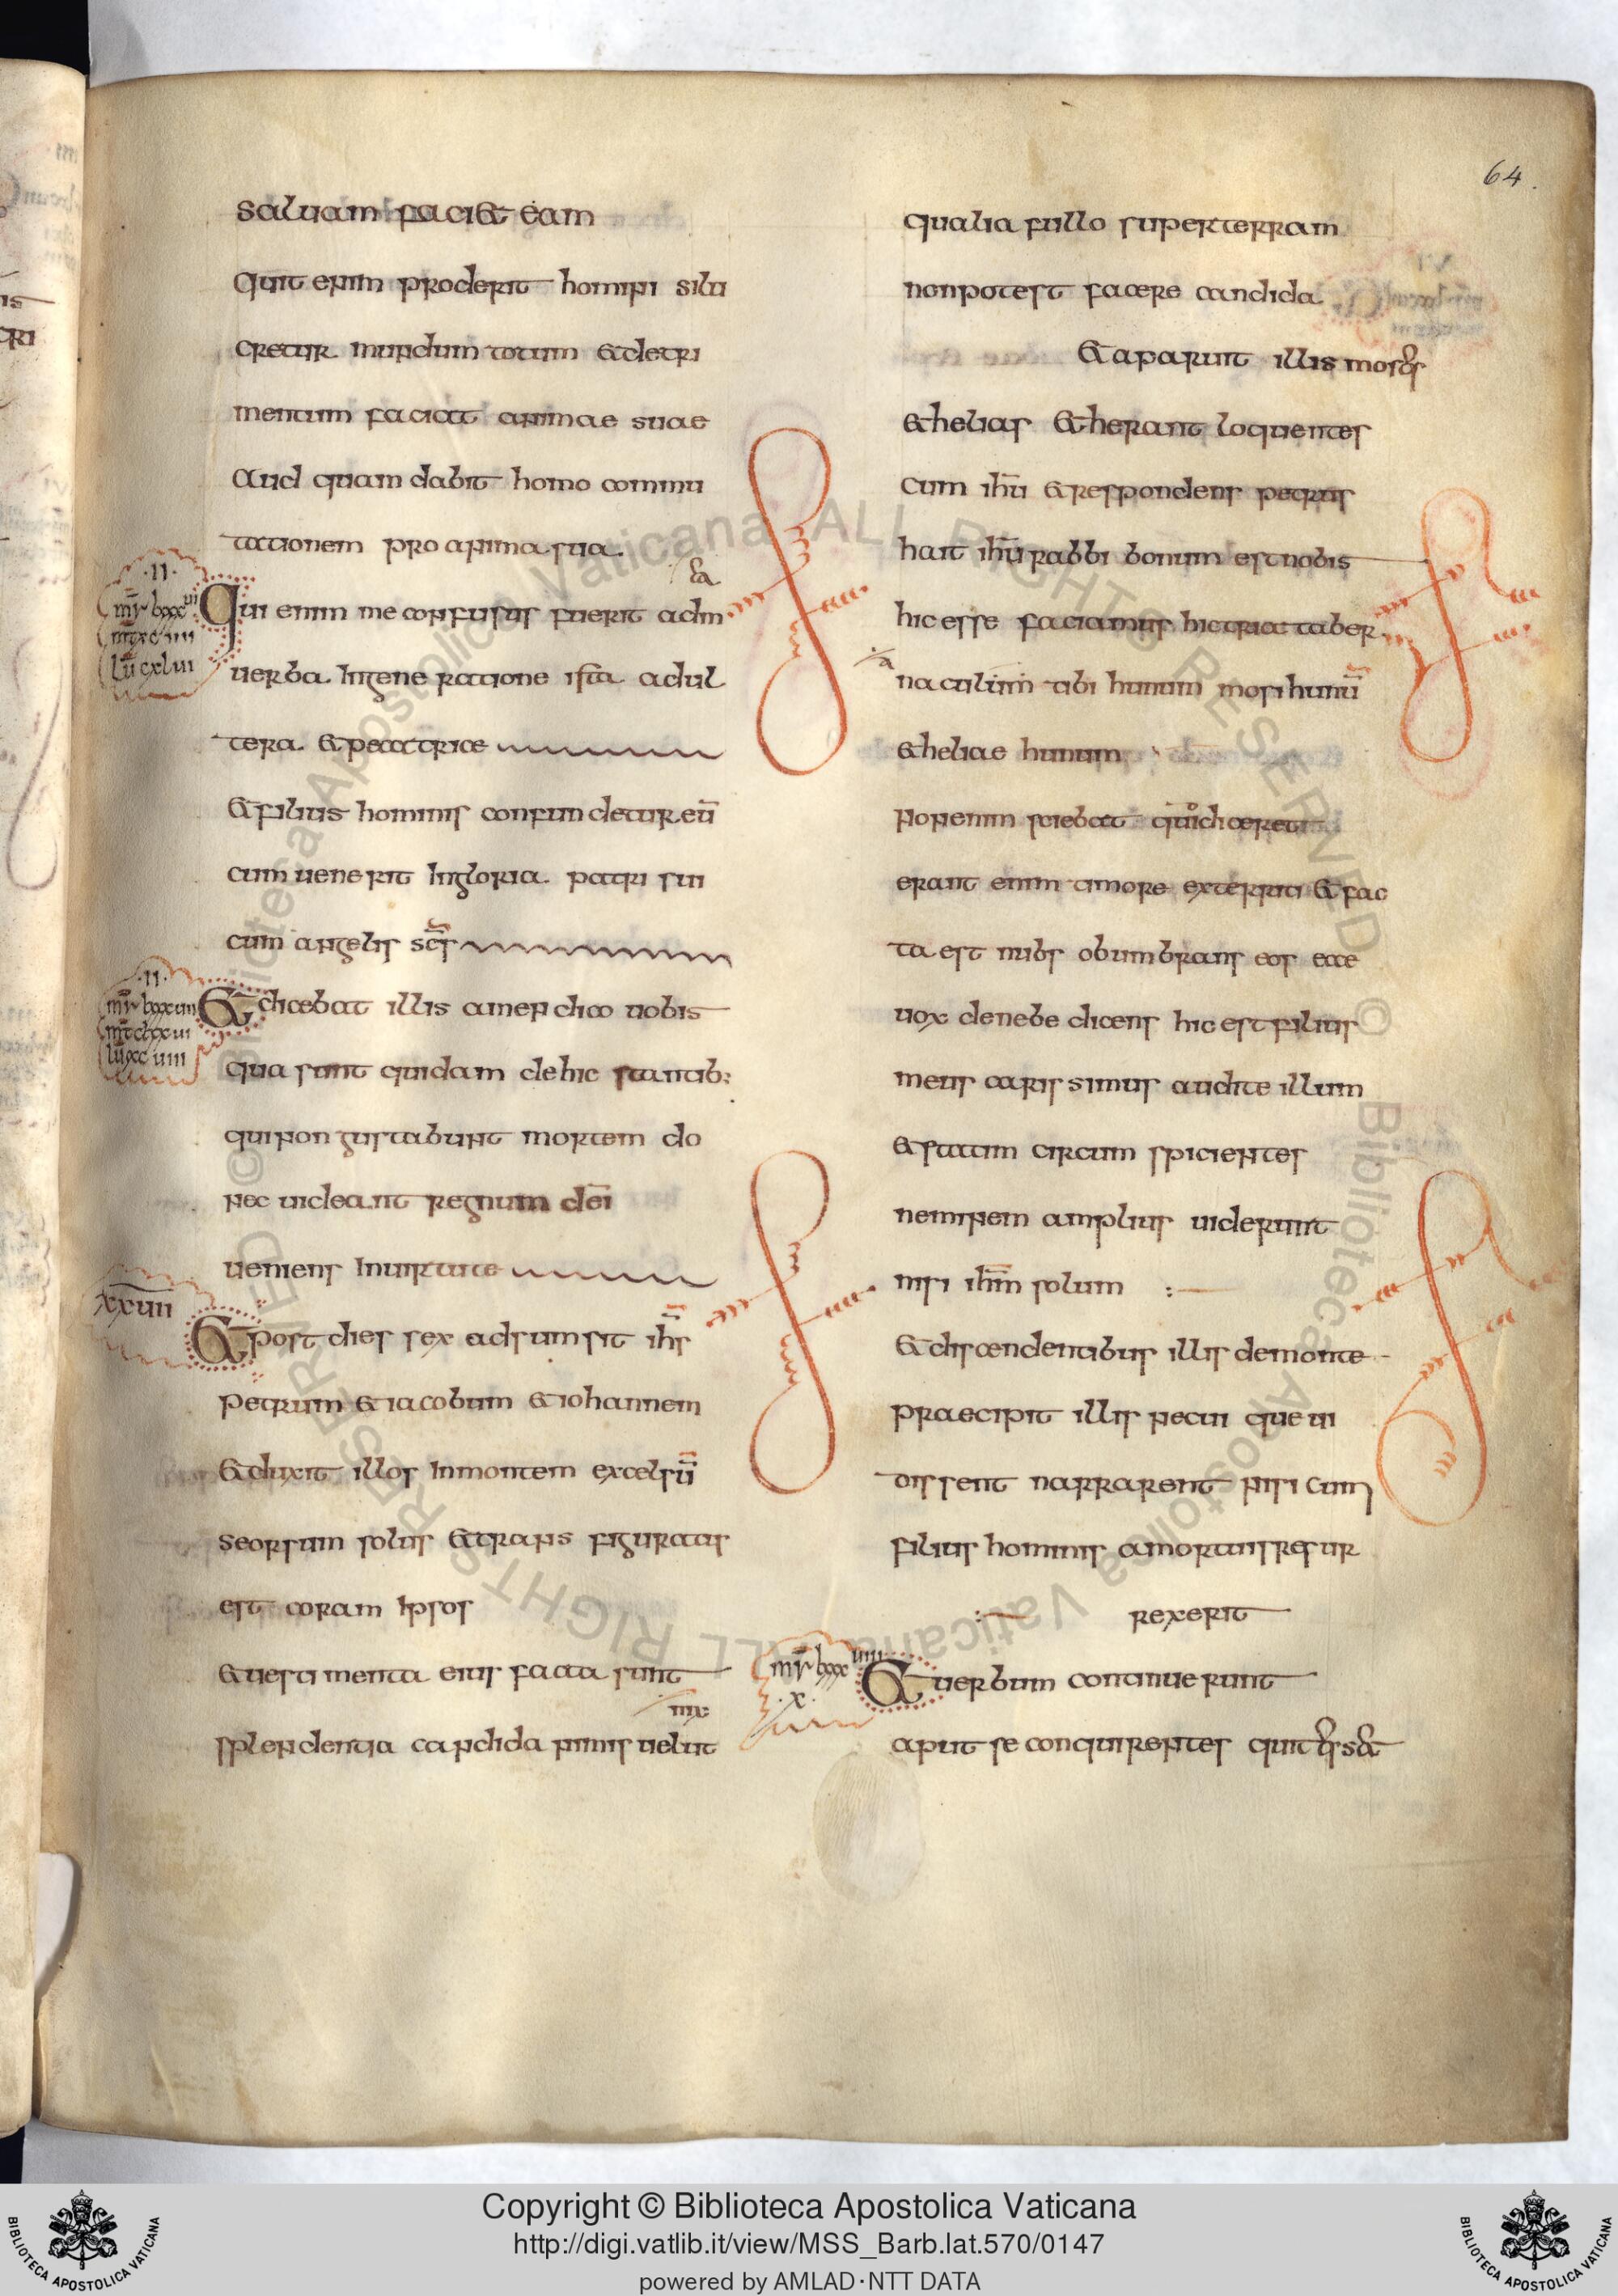 64.
saluam faci& eam
Quit enim proderit homini si lu
cretur mundum totum & detri
mentum faciat animae suae
Aud quam dabit homo commu
tationem pro anima sua.
.II.
mr̄ lxxxvii
Qui enim me confusus fuerit & mea
uerba In gene ratione ista adul
tera & peccatrice
& filius hominis confundetur eū
cum uenerit In gloria patri sui
cum angelis sc̄s
.II.
&dicebat illis amen dico uobis
qua sunt quidam de hic stantib:
qui non gustabunt mortem do
nec uideant regnum dei
ueniens In uirtute
xxuii
& post dies sex adsumsit ih̄s
petrum & iacobum & iohannem
& duxit illos In montem excelsū
seorsum solus & trans figuratus
est coram Ipsos
& uestimenta eius facta sunt
splendentia candida nimis uelut
nix
qualia fullo super terram
non potest facere candida
& aparuit illis moses
& helias & herant loquentes
cum ih̄u & respondens petrus
hait ih̄u rabbi bonum est nobis
hic esse faciamus hic tria taber
nacula tibi hunum mosi hunū
& heliae hunum
non enim sciebat quid diceret
erant enim timore exterriti & fac
ta est nubs obumbrans eos ecce
uox de nebe dicens hic est filius
meus carissimus audite illum
& statim circum spicientes
neminem amplius uiderunt
nisi ih̄m solum :
& discendentibus illis de monte
praecipit illis ne cui que ui
dissent narrarent nisi cum
filius hominis a mortuis resur
rexerit
mr̄ lxxxuiiii
.x.
& uerbum continuerunt
aput se conquirentes quit ess&
Copyright © Biblioteca Apostolica Vaticana
http://digi.vatlib.it/view/MSS_Barb.lat.570/0147
powered by AMLAD·NTT DATA
BIBLIOTECA APOSTOLICA VATICANA
BIBLIOTECA APOSTOLICA VATICANA